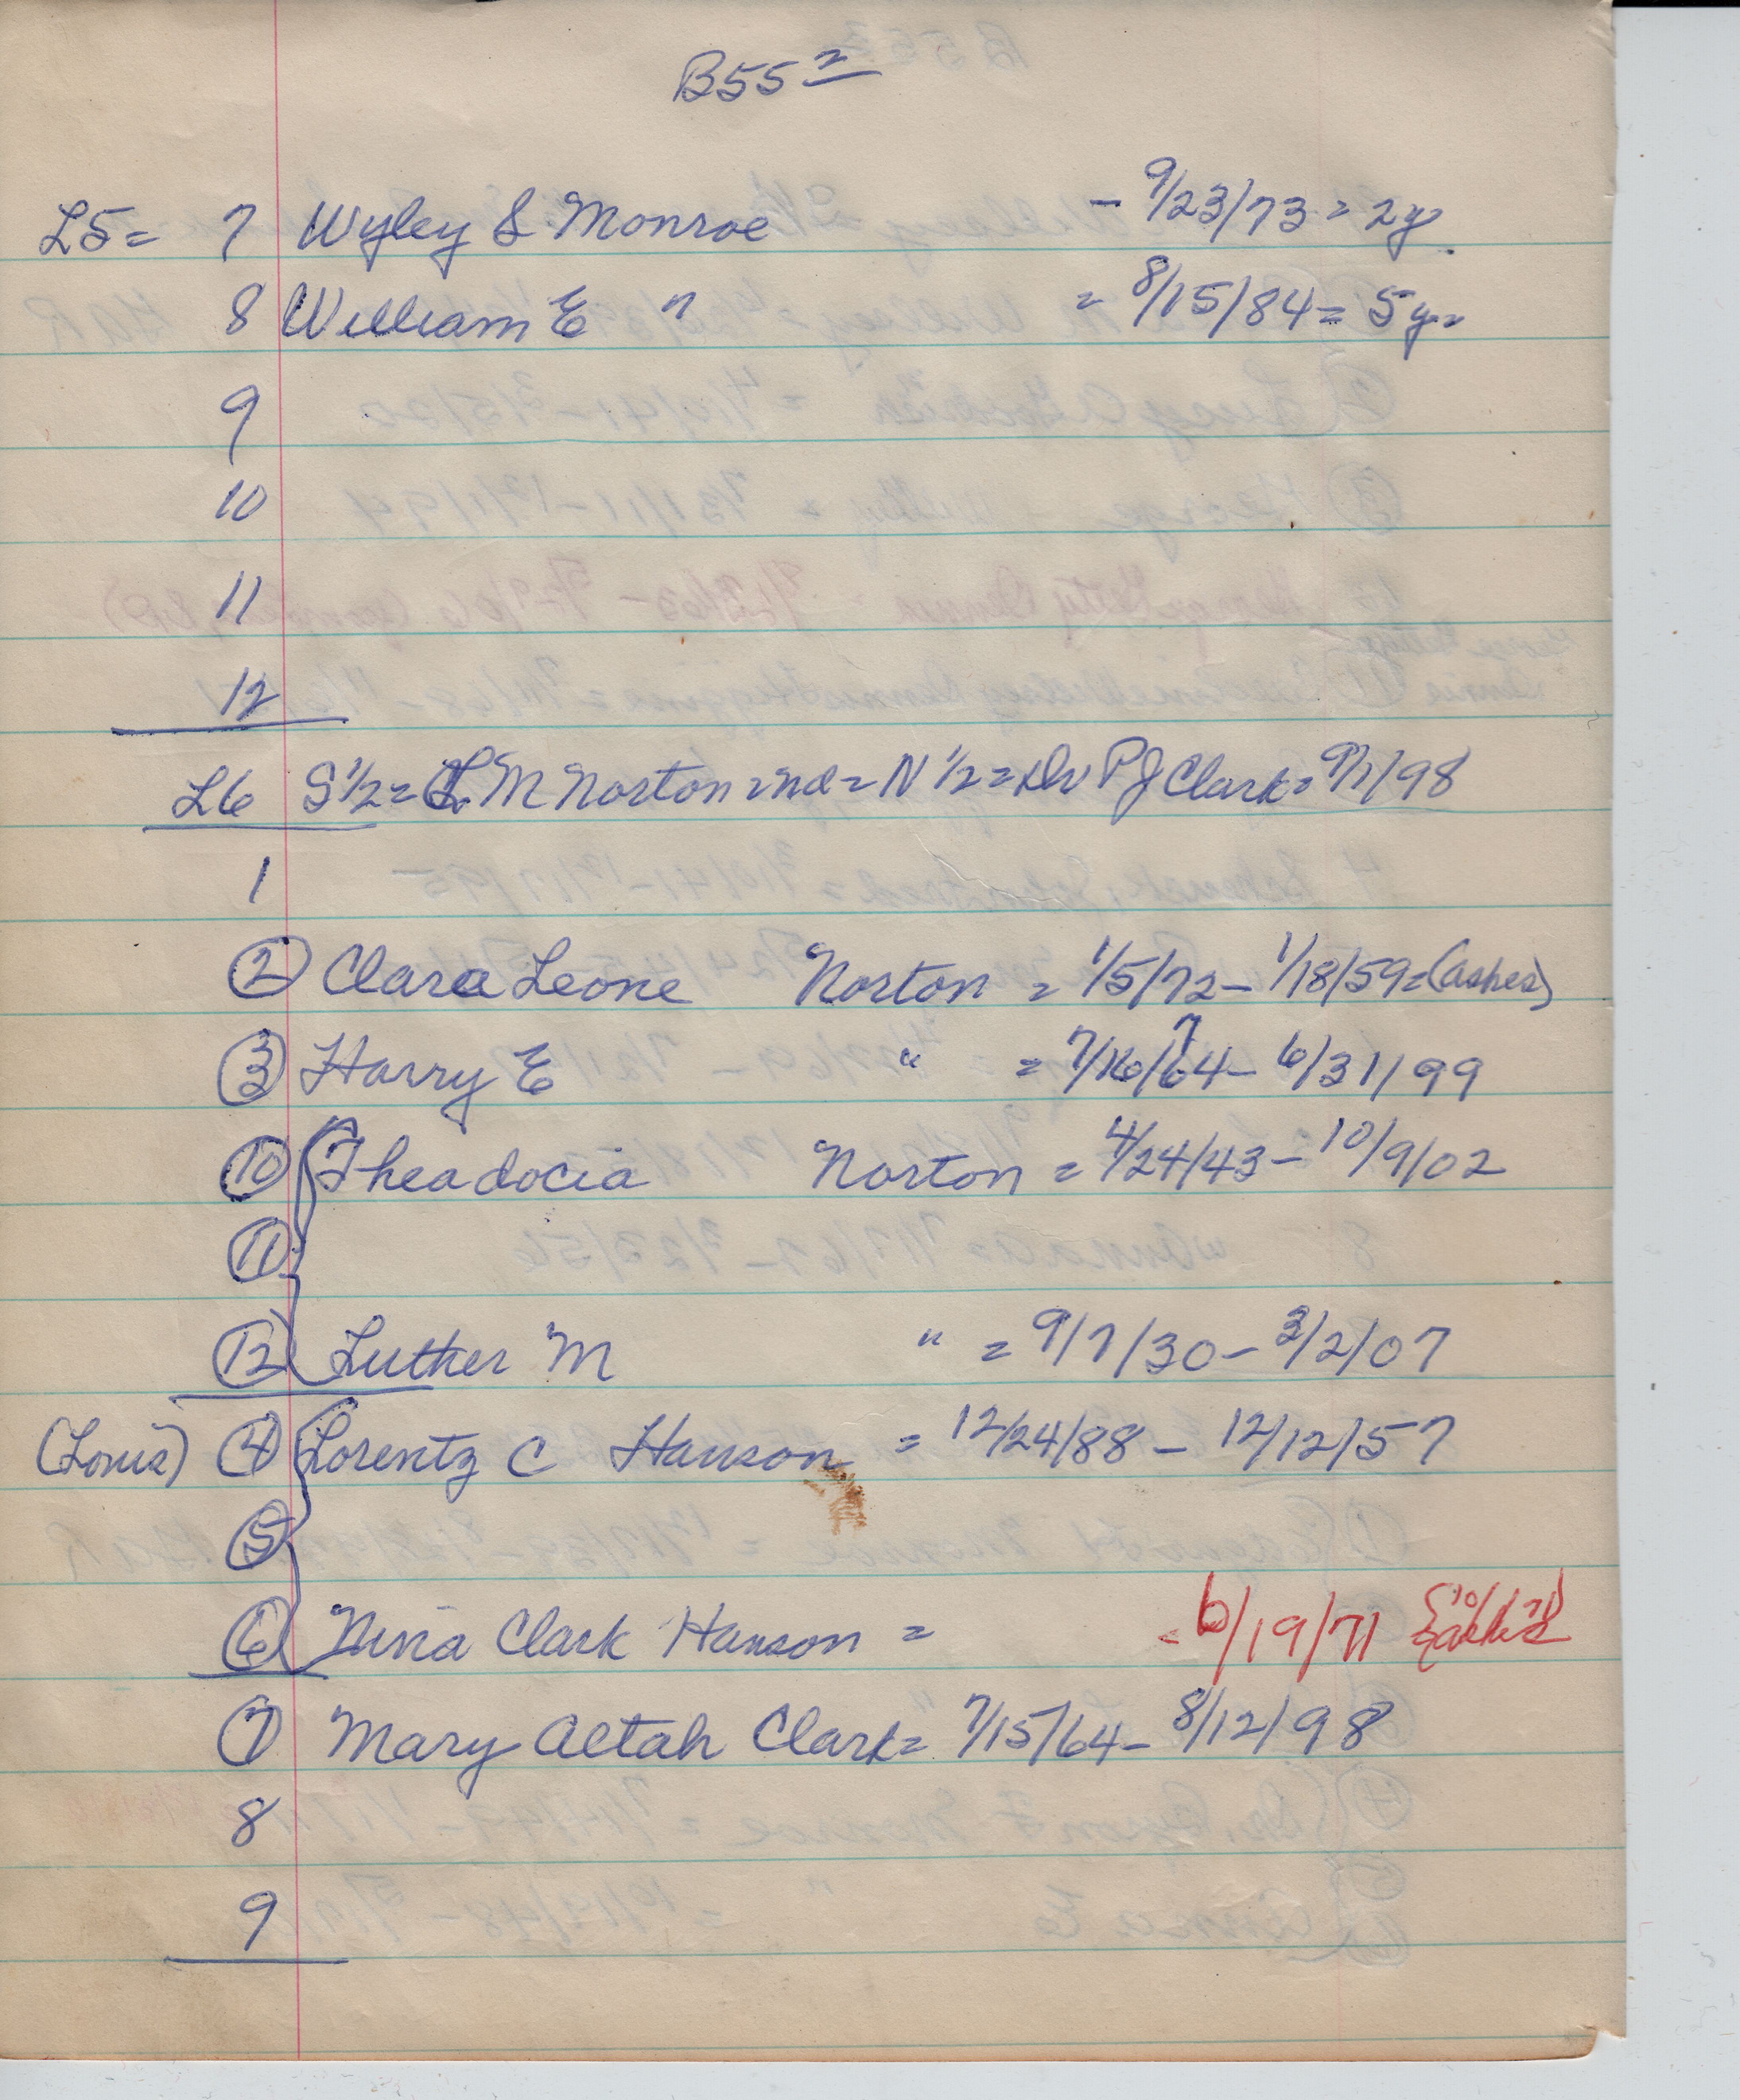 B55 2
L5= 7 Wyley S Monroe - 9/23/73 = 2y.
8 William E " = 8/15/84 = 5y=
9
10
11
12
L6 S 1/2 = L M Norton = nd = N 1/2 = Dr P J Clark = 9/1/98
1
2 Clara Leone Norton = 1/5/72 - 1/18/59 = (ashes)
3 Harry E " = 7/16/64 7 - 6/31/99
10 Theadocia Norton = 4/24/43 - 10/9/02
11
12 Luther M " = 9/7/30 - 3/2/07
(Louis) 4 Lorentz C Hanson = 12/24/88 - 12/12/57
5
6 Nina Clark Hanson = - 6/19/71
7 Mary Aletah Clark = 7/15/64 - 8/12/98
8
9